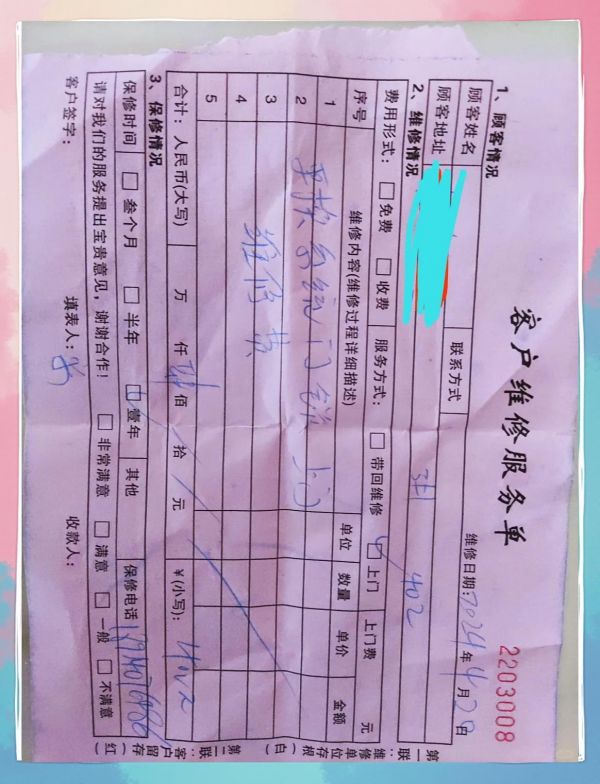 客户维修服务单
2203008
1、顾客情况
维修日期:2024年4月20日
顾客姓名
联系方式
顾客地址
402
2、维修情况
费用形式: 免费 收费 服务方式: 带回维修 上门 上门费 元
序号 维修内容(维修过程详细描述) 单位 数量 单价 金额
1
2
3 维修费
4
5
合计: 人民币(大写) 万 仟 肆佰 拾 元 ¥(小写):
3、保修情况
保修时间 叁个月 半年 壹年 其他 保修电话
请对我们的服务提出宝贵意见,谢谢合作! 非常满意 满意 一般 不满意
客户签字: 填表人: 收款人:
第一联 维修单位存根(白)
第二联 客户留存(红)